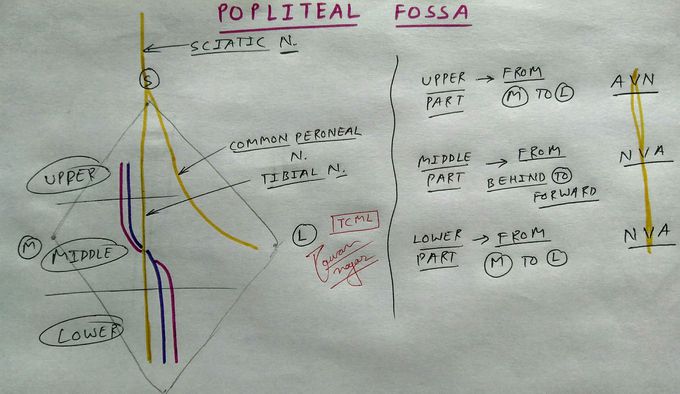 POPLITEAL FOSSA
SCIATIC N.
S
COMMON PERONEAL
N.
TIBIAL N.
UPPER
M
L
MIDDLE
LOWER
TCML
Pawan
nagar
UPPER → FROM
PART M TO L
AVN
MIDDLE → FROM
PART BEHIND TO
FORWARD
NVA
LOWER → FROM
PART M TO L
NVA